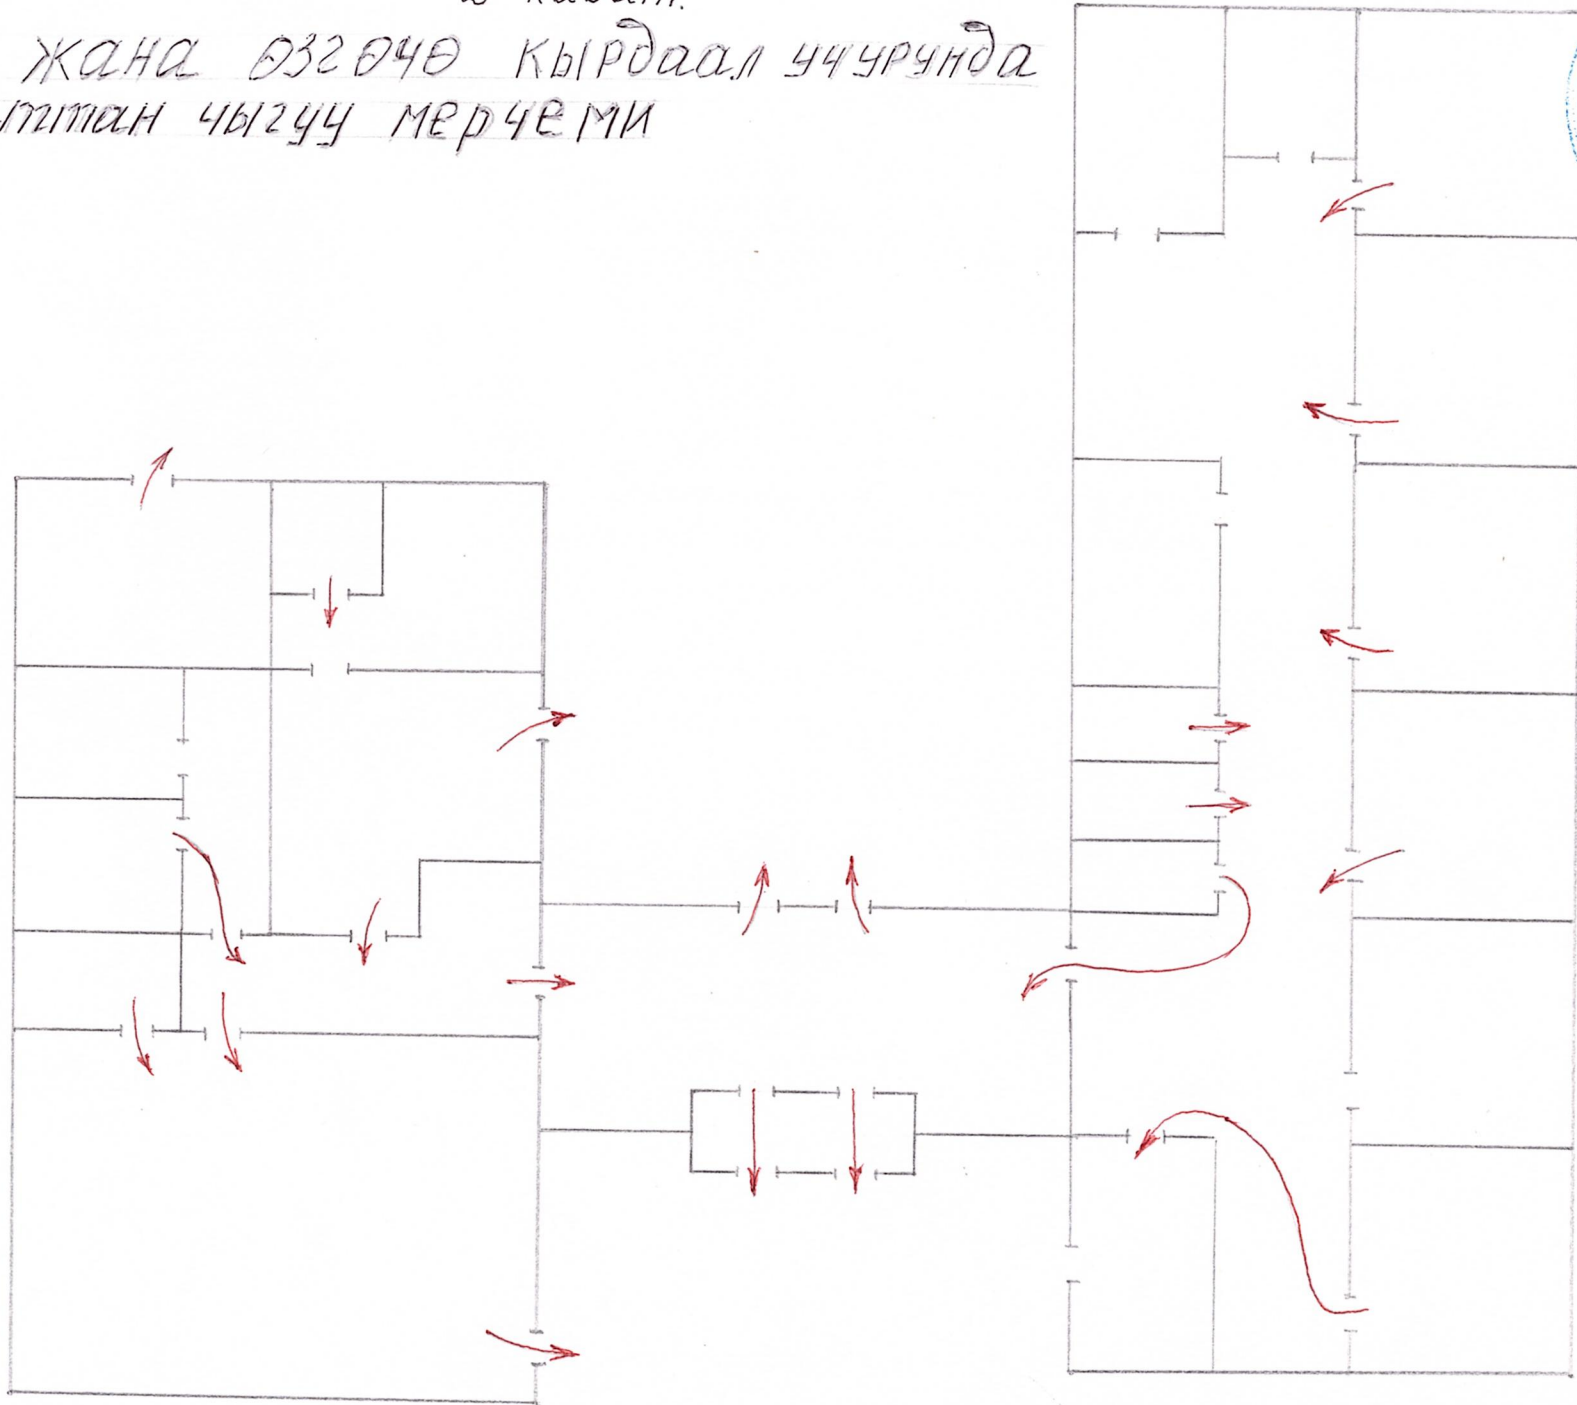 жана өзгөчө кырдаал учурунда
чыгуу мерчеми